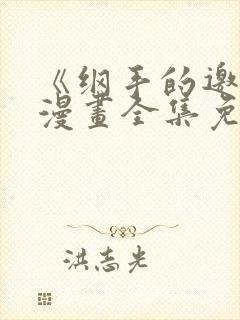 《纲手的邀
漫畫全集免
洪志光